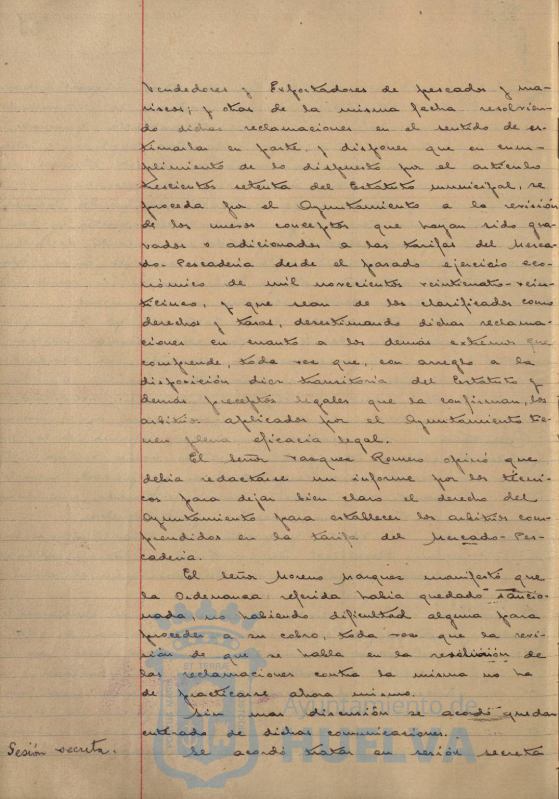 Vendedores y Exportadores de pescados y ma-
riscos; y otras de la misma fecha resolvien-
do dichas reclamaciones en el sentido de es-
timarlas en parte, y dispones que en cum-
plimiento de lo dispuesto por el artículo
trescientos setenta del Estatuto municipal, se
proceda por el Ayuntamiento a la revisión
de los nuevos conceptos que hayan sido gra-
vados o adicionados a las tarifas del Merca-
do-Pescadería desde el pasado ejercicio eco-
nómico de mil novecientos veinticuatro-vein-
ticinco, y que sean de los clasificados como
derechos y tasas, desestimando dichas reclama-
ciones en cuanto a los demás extremos que
comprende, toda vez que, con arreglo a la
disposición diez transitoria del Estatuto y
demás preceptos legales que la confirman, los
arbitrios aplicados por el Ayuntamiento tie-
nen plena eficacia legal.
El Señor Vazquez Romero opinó que
debía redactarse un informe por los técni-
cos para dejar bien claro el derecho del
Ayuntamiento para establecer los arbitrios com-
prendidos en la tarifa del Mercado-Pes-
cadería.
El Señor Moreno Marquez manifestó que
la Ordenanza referida había quedado sancio-
nada, no habiendo dificultad alguna para
proceder a su cobro, toda vez que la revi-
sión de que se habla en la resolución de
las reclamaciones contra la misma no ha
de practicarse ahora mismo.
Sin mas discusión se acordó quedar
enterado de dichas comunicaciones.
Sesión secreta. Se acordó tratar en sesión secreta
ET TERRAE
Ayuntamiento de
HUELVA